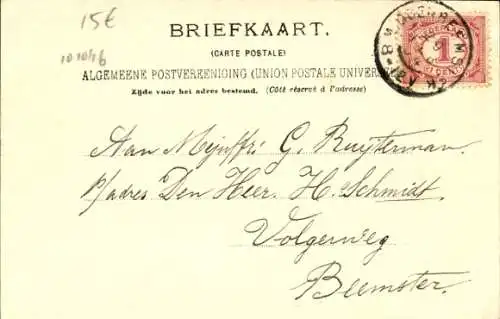 15€
BRIEFKAART.
(CARTE POSTALE)
ALGEMEENE POSTVEREENIGING (UNION POSTALE UNIVER
Zijde voor het adres bestemd. (Côté réservé à l'adresse)
1
Aan Mejuffr: G. Ruyterman.
p/adres Den Heer. H. Schmidt.
Volgerweg
Beemster.